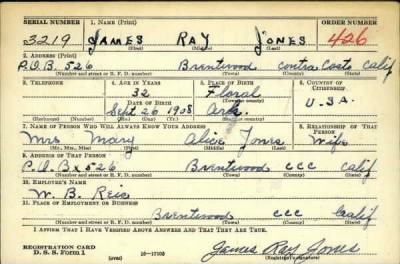 SERIAL NUMBER 1. NAME (Print) ORDER NUMBER
3219 JAMES RAY JONES 426
(First) (Middle) (Last)
2. ADDRESS (Print)
P.O.B. 526 Brentwood Contra Costa Calif
(Number and street or R. F. D. number) (Town) (County) (State)
3. TELEPHONE 4. AGE IN YEARS 5. PLACE OF BIRTH 6. COUNTRY OF CITIZENSHIP
32 Floral
DATE OF BIRTH (Town or county) U.S.A.
Sept 26 1908 Ark.
(Exchange) (Number) (Mo.) (Day) (Yr.) (State or country)
7. NAME OF PERSON WHO WILL ALWAYS KNOW YOUR ADDRESS 8. RELATIONSHIP OF THAT PERSON
Mrs Mary Alice Jones Wife
(Mr., Mrs., Miss) (First) (Middle) (Last)
9. ADDRESS OF THAT PERSON
P.O.Bx 526 Brentwood CCC Calif
(Number and street or R. F. D. number) (Town) (County) (State)
10. EMPLOYER'S NAME
W. B. Reis
11. PLACE OF EMPLOYMENT OR BUSINESS
Brentwood CCC Calif
(Number and street or R. F. D. number) (Town) (County) (State)
I AFFIRM THAT I HAVE VERIFIED ABOVE ANSWERS AND THAT THEY ARE TRUE.
REGISTRATION CARD
D. S. S. Form 1 (over) 16—17105 James Ray Jones